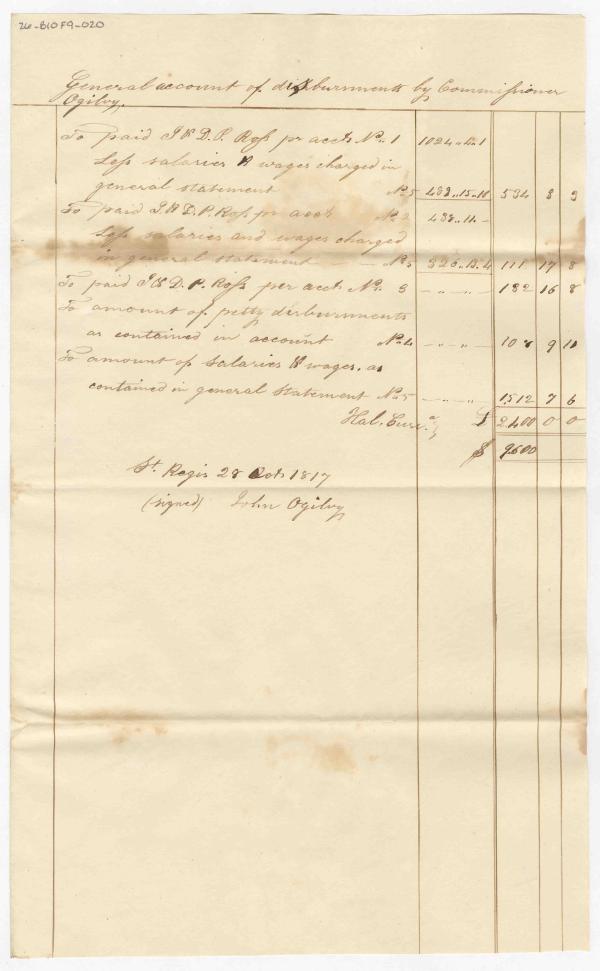 26-B10F9-020
General account of disbursments by Commissioner
Ogilvy,
To paid J & D. P. Ross pr acct No. 1 1024,, ,, 1
Less salaries & wages charged in
general statement No 5 489,,15,,10 534 8 3
To paid J & D. P. Ross pr acct No. 2 438,,11,,-
Less salaries and wages charged
in general statement No 5 326,,13,,4 111 17 8
To paid J & D. P. Ross per acct No. 3 132 16 8
To amount of petty disbursments
as contained in account No 4 108 9 11
To amount of Salaries & wages, as
contained in general Statement No. 5 1512 7 6
Hal. Cur. £ 2400 0 0
$ 9600
St. Regis 28 Oct. 1817
(signed) John Ogilvy